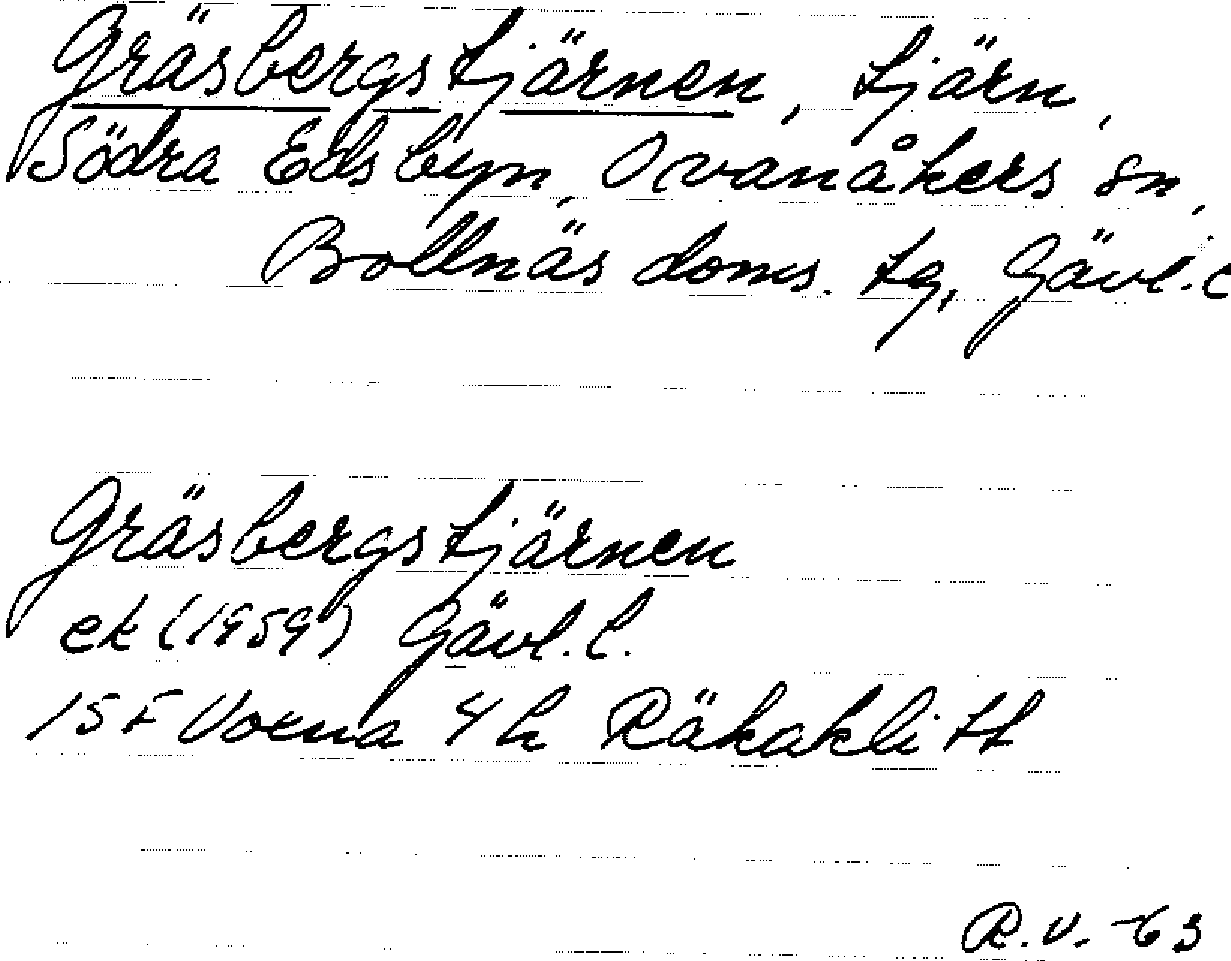 Gräsbergstjärnen, tjärn,
Södra Edsbyn, Ovanåkers sn,
Bollnäs doms. tg, Gävl.l
Gräsbergstjärnen
ek (1959) Gävl.l.
15F Voxna 4h Räkaklitt
R.V. -63